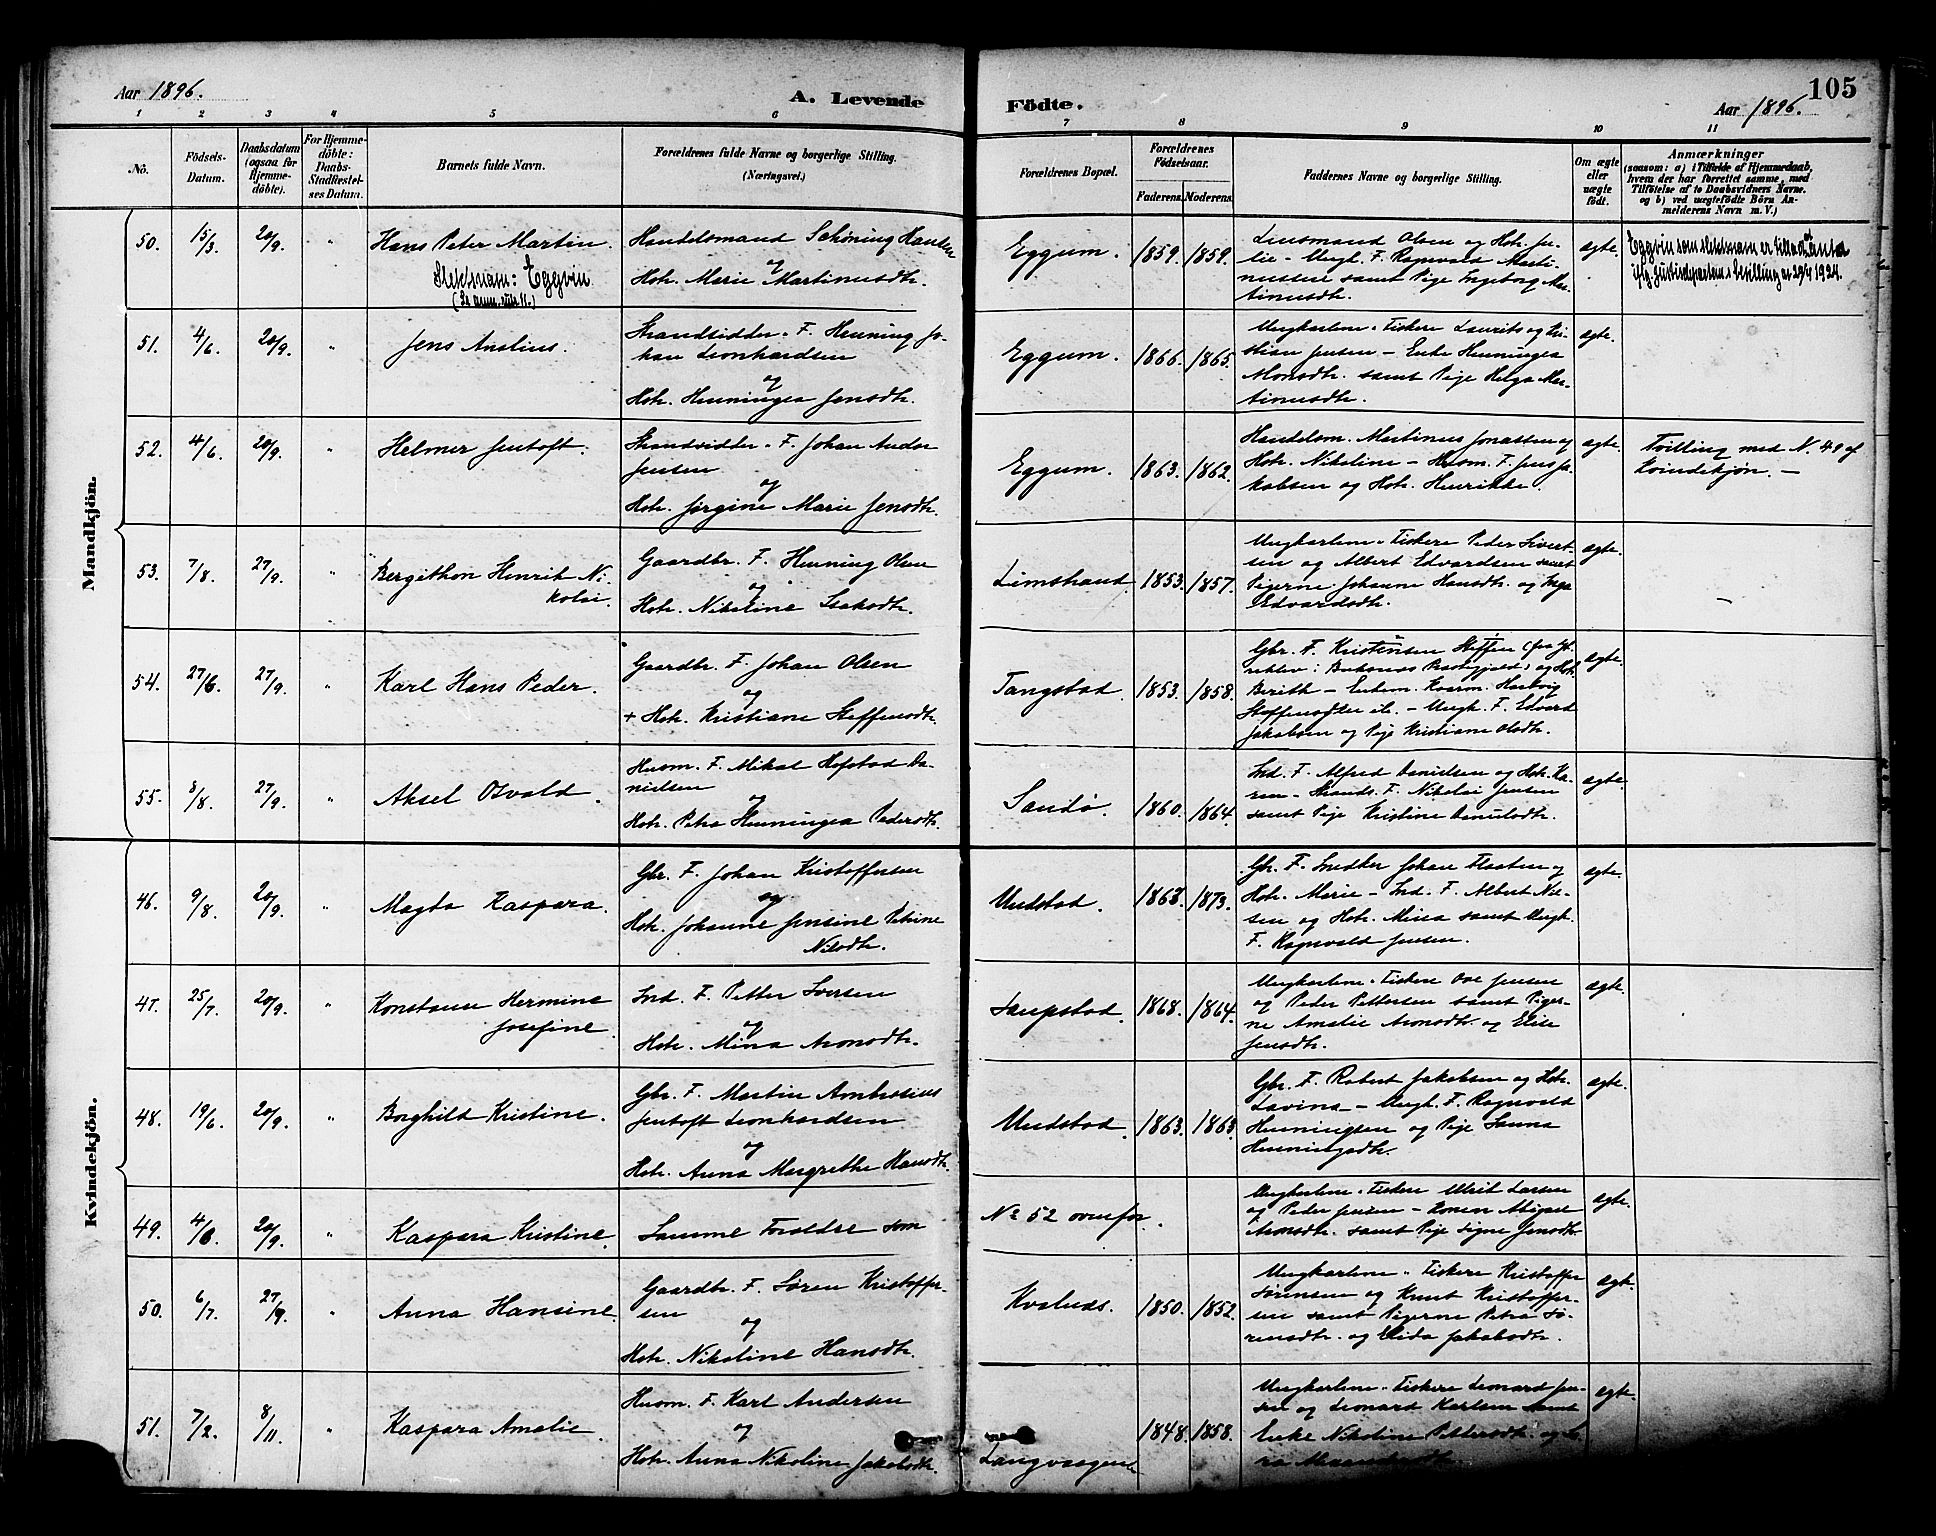 Aar 1896.
A. Levende Födte.
Aar 1896.
105
1 2 3 4 5 6 7 8 9 10 11
No.
Födsels-Datum.
Daabsdatum (ogsaa for Hjemmedöbte).
For Hjemmedöbte: Daabs-Stadfæstelses Datum.
Barnets fulde Navn.
Forældrenes fulde Navne og borgerlige Stilling. (Næringsvei.)
Forældrenes Bopæl.
Forældrenes Födselsaar.
Faderens. Moderens.
Faddernes Navne og borgerlige Stilling.
Om ægte eller uægte födt.
Anmærkninger
(saasom: a) i Tilfælde af Hjemmedaab, hvem der har forrettet samme, med Tilföielse af to Daabsvidners Navne. og b) ved uægtefödte Börn Anmelderens Navn m. V.)
Mandkjön.
50. 15/3 20/9. " Hans Peter Martin.
Slektsnavn: Eggvin
(Se anm. rubr. 11.)
Handelsmand Schöning Hansen
og
Hstr. Marie Martinusdtr.
Eggum. 1859. 1859.
Lensmand Olsen og Hstr. Julie - Ungk. F. Ragnvald Martinussen samt Pige Ingeborg Martinusdtr.
ægte.
Eggvin som slektsnavn er tilladt
ifg. Justisdepartem.s bevilling av 29/4 1924.
51. 4/6. 20/9. " Jens Anelius.
Strandsidder. F. Henning Johan Leonhardsen
og
Hstr. Henningea Jensdtr.
Eggum. 1866. 1865
Ungkarlene. Fiskere Laurits og Kristian Jensen - Enke Henningea Monsdtr. samt Pige Helga Martinusdtr.
ægte.
52. 4/6. 20/9. " Helmer Jentoft.
Strandsidder. F. Johan Andor Jensen
og
Hstr. Jørgine Marie Jensdtr.
Eggum. 1863. 1862.
Handelsm. Martinus Jonassen og Hstr. Nikoline - Husm. F. Jens Jakobsen og Hstr. Henrikke.
ægte.
Tvilling med N. 49 af Kvindekjøn. -
53. 7/8. 27/9. " Bergithon Henrik Nikolai.
Gaardbr. F. Henning Olsen
og
Hstr. Nikoline Isaksdtr.
Limstrand. 1853. 1857.
Ungkarlene. Fiskere Peder Sivertsen og Albert Edvardsen samt Pigerne Johanne Hansdtr. og Inga Edvardsdtr.
ægte.
54. 27/6. 27/9. " Karl Hans Peder.
Gaardbr. F. Johan Olsen
og
+ Hstr. Kristiane Steffensdtr.
Tangstad. 1853. 1858.
Gbr. F. Kristensen Steffen (fra i Buksnæs Præstegjeld) og Hstr. Berith - Enkem. Hartvig - Ungk. F. Edvard Jakobsen og Pige Kristiane Olsdtr.
ægte.
55. 8/8. 27/9. " Aksel Osvald.
Husm. F. Mikal Hofstad Danielsen
og
Hstr. Petra Henningea Pedersdtr.
Sandø. 1860. 1864.
Ind. F. Alfred Danielsen og Hstr. Karen - Strands. F. Nikolai Jensen samt Pige Kristine Danielsdtr.
ægte.
Kvindekjön.
46. 9/8. 20/9. " Magda Kaspara.
Gbr. F. Johan Kristoffersen
og
Hstr. Johanne Jensine Petrine Nilsdtr.
Undstad. 1868. 1873.
Gbr. F. Snedker Johan Flaaten og Hstr. Marie - Ind. F. Albert Nilsen og Hstr. Mina samt Ungk. F. Ragnvald Jensen.
ægte.
47. 25/7. 20/9. " Konstanse Hermine Josefine.
Ind. F. Petter Iversen
og
Hstr. Mina Aronsdtr.
Laupstad. 1868. 1864.
Ungkarlene. Fiskere Ove Jensen og Peder Pettersen samt Pigerne Amalie Aronsdtr. og Elise Jensdtr.
ægte.
48. 19/6. 20/9. " Borghild Kristine.
Gbr. F. Martin Ambrosius Jentoft Leonhardsen
og
Hstr. Anna Margrethe Hansdtr.
Undstad. 1863. 1863.
Gbr. F. Robert Jakobsen og Hstr. Lavina - Ungk. F. Ragnvald Henningsen og Pige Sanna Henningsdtr.
ægte.
49. 4/6. 20/9. " Kaspara Kristine.
Samme Forældre som
No 52 ovenfor.
Ungkarlene. Fiskere Ulrik Larsen og Peder Jensen - Konen Abigael Aronsdtr. samt Pige Signe Jensdtr.
ægte.
50. 6/7. 27/9. " Anna Hansine.
Gaardbr. F. Søren Kristoffersen
og
Hstr. Nikoline Hansdtr.
Kvalnæs. 1850. 1852.
Ungkarlene. Fiskere Kristoffer Sørensen og Knut Kristoffersen samt Pigerne Petra Sørensdtr. og Elida Jakobsdtr.
ægte.
51. 7/2. 8/11. " Kaspara Amalie.
Husm. F. Karl Andersen
og
Hstr. Anna Nikoline Jakobsdtr.
Langvaagen 1848. 1858.
Ungkarlene. Fiskere Leonard Jensen og Leonard Karlsen samt Enke Nikoline Pettersdtr. og
ægte.